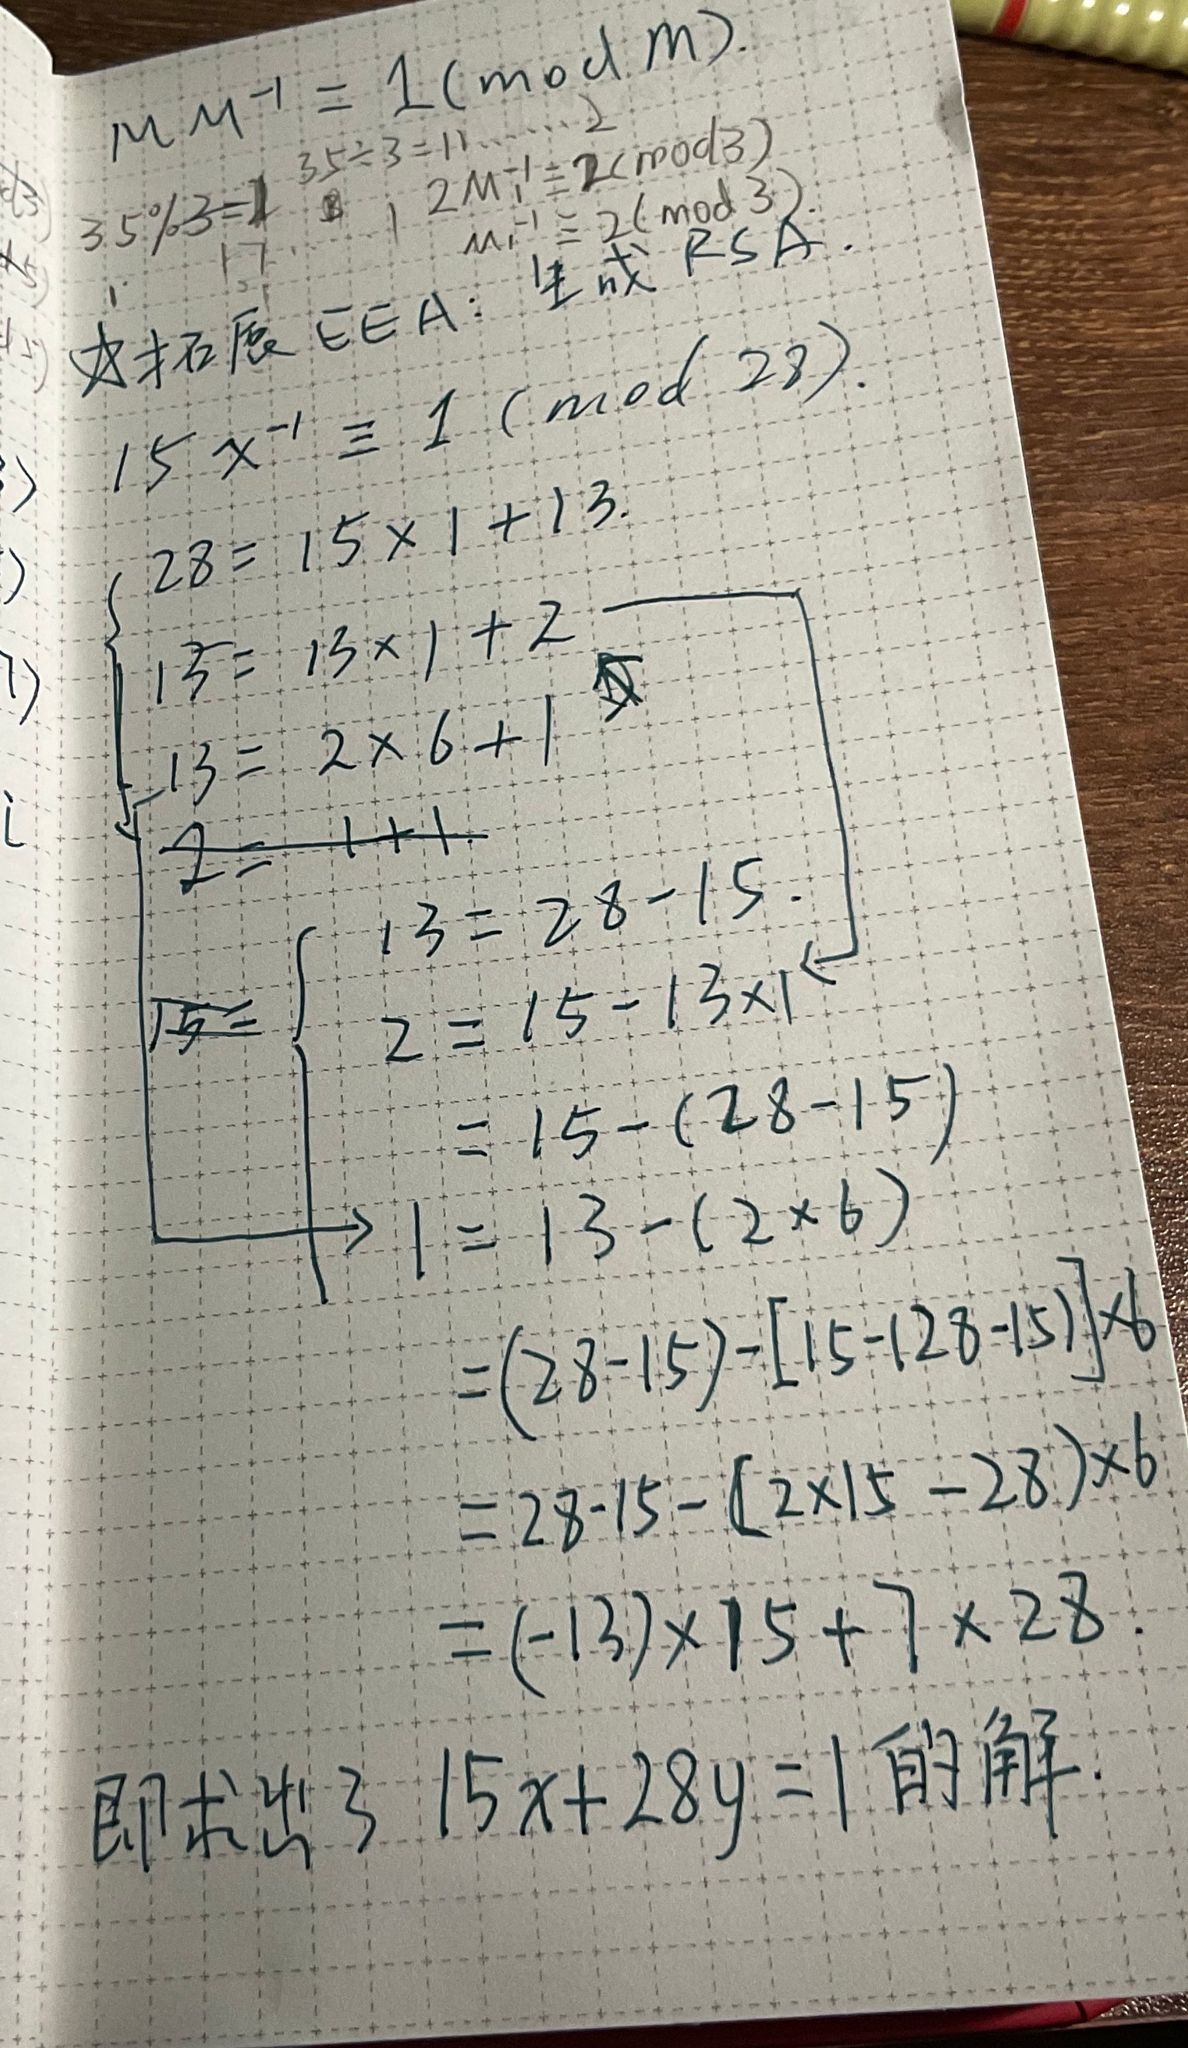 M M⁻¹ ≡ 1 (mod m).
35÷3=11......2
35%3=1
2M₁⁻¹≡2(mod3)
17
M₁⁻¹≡2(mod 3).
☆拓展 EEA: 生成 RSA.
15 x⁻¹ ≡ 1 (mod 28).
28 = 15×1+13.
15 = 13×1+2
13 = 2×6+1
2 = 1+1.
13 = 28-15.
15=
2 = 15-13×1
= 15-(28-15)
1 = 13-(2×6)
=(28-15)-[15-(28-15)]×6
=28-15-(2×15-28)×6
=(-13)×15+7×28.
即求出了 15x+28y=1 的解.